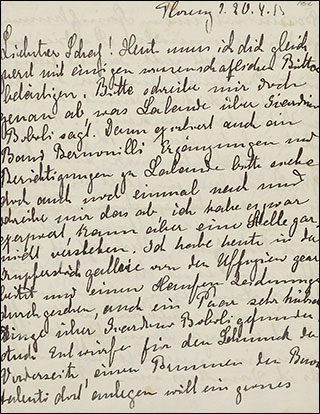 Florenz d. 20.4.13
Liebster Schatz! Heut muss ich dich gleich
zuerst mit einigen wissenschaftlichen Bitten
belästigen. Bitte schreibe mir doch
genau ab was Lalande über Giardino
Boboli sagt. Dann existiert auch ein
Band Bernouilli Ergänzungen und
Berichtigungen zu Lalande bitte siehe
doch auch noch einmal nach und
schreibe mir das ab, ich habe es zwar
kann aber eine Stelle gar
nicht verstehen. Ich habe heute in der
Kupferstichgallerie von den Uffizien gear
beitet und einen Haufen Zeichnungen
durchgesehen, auch ein Paar sehr hübsche
Dinge über Giardino Boboli gefunden
auch Entwürfe für den Schmuck der
Vorderseite, einen Brunnen den
dort anlegen will ein grosses